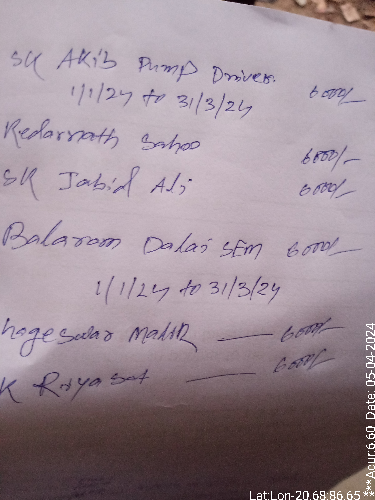 SK AKib Pump Driver 6000/-
1/1/24 to 31/3/24
Kedarnath Sahoo 6000/-
SK Jabid Ali 6000/-
Balaram Dalai SEM 6000/-
1/1/24 to 31/3/24
hageswar Malik — 6000/-
K Riyasat — 6000/-
Lat:Lon-20.68:86.65 ***Acur:6.60 Date: 05-04-2024